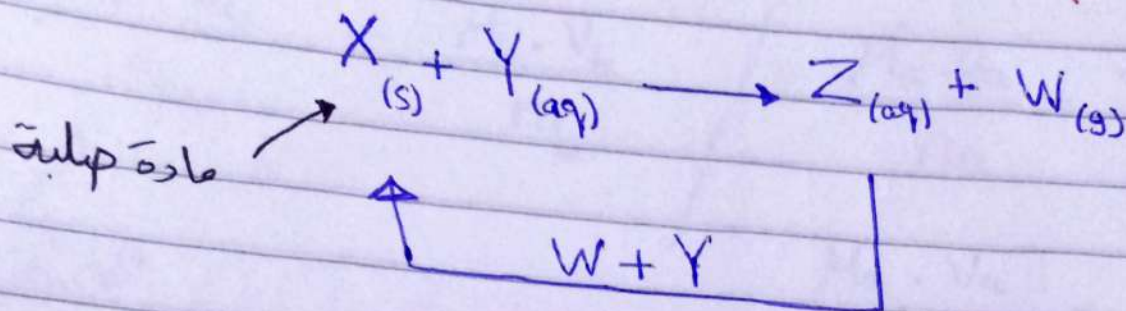 X(s) + Y(aq) → Z(aq) + W(g)
مادة صلبة
W + Y